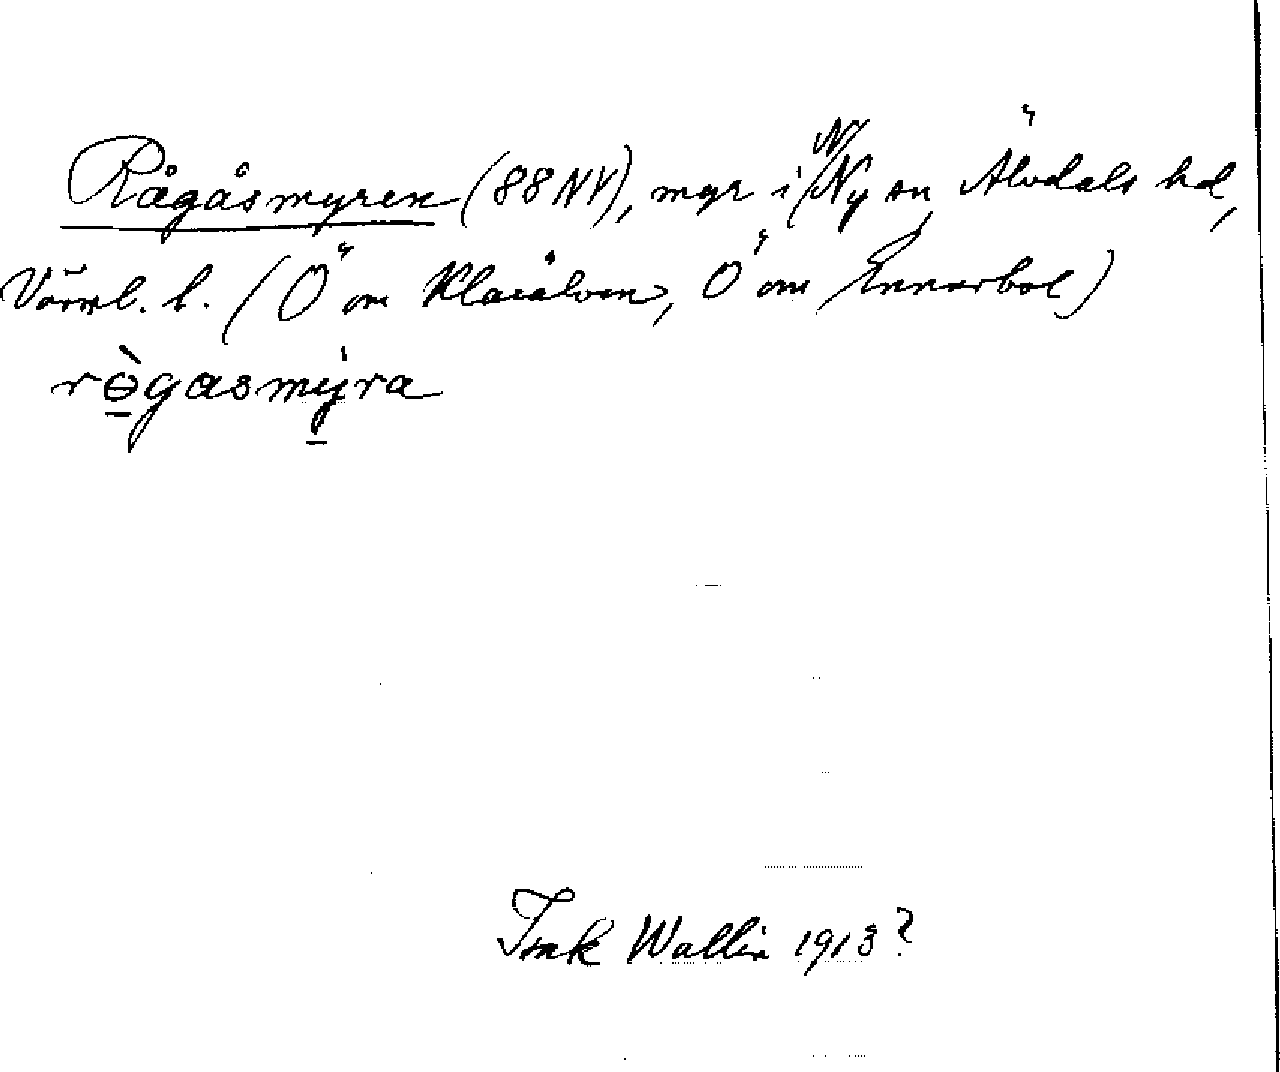 Rågåsmyren (88NV), myr i N Ny sn, Älvdals hd,
Värml. l. (Ö om Klarälven, Ö om Ennarbol)
rògasmýra
Isak Wallin 1913?